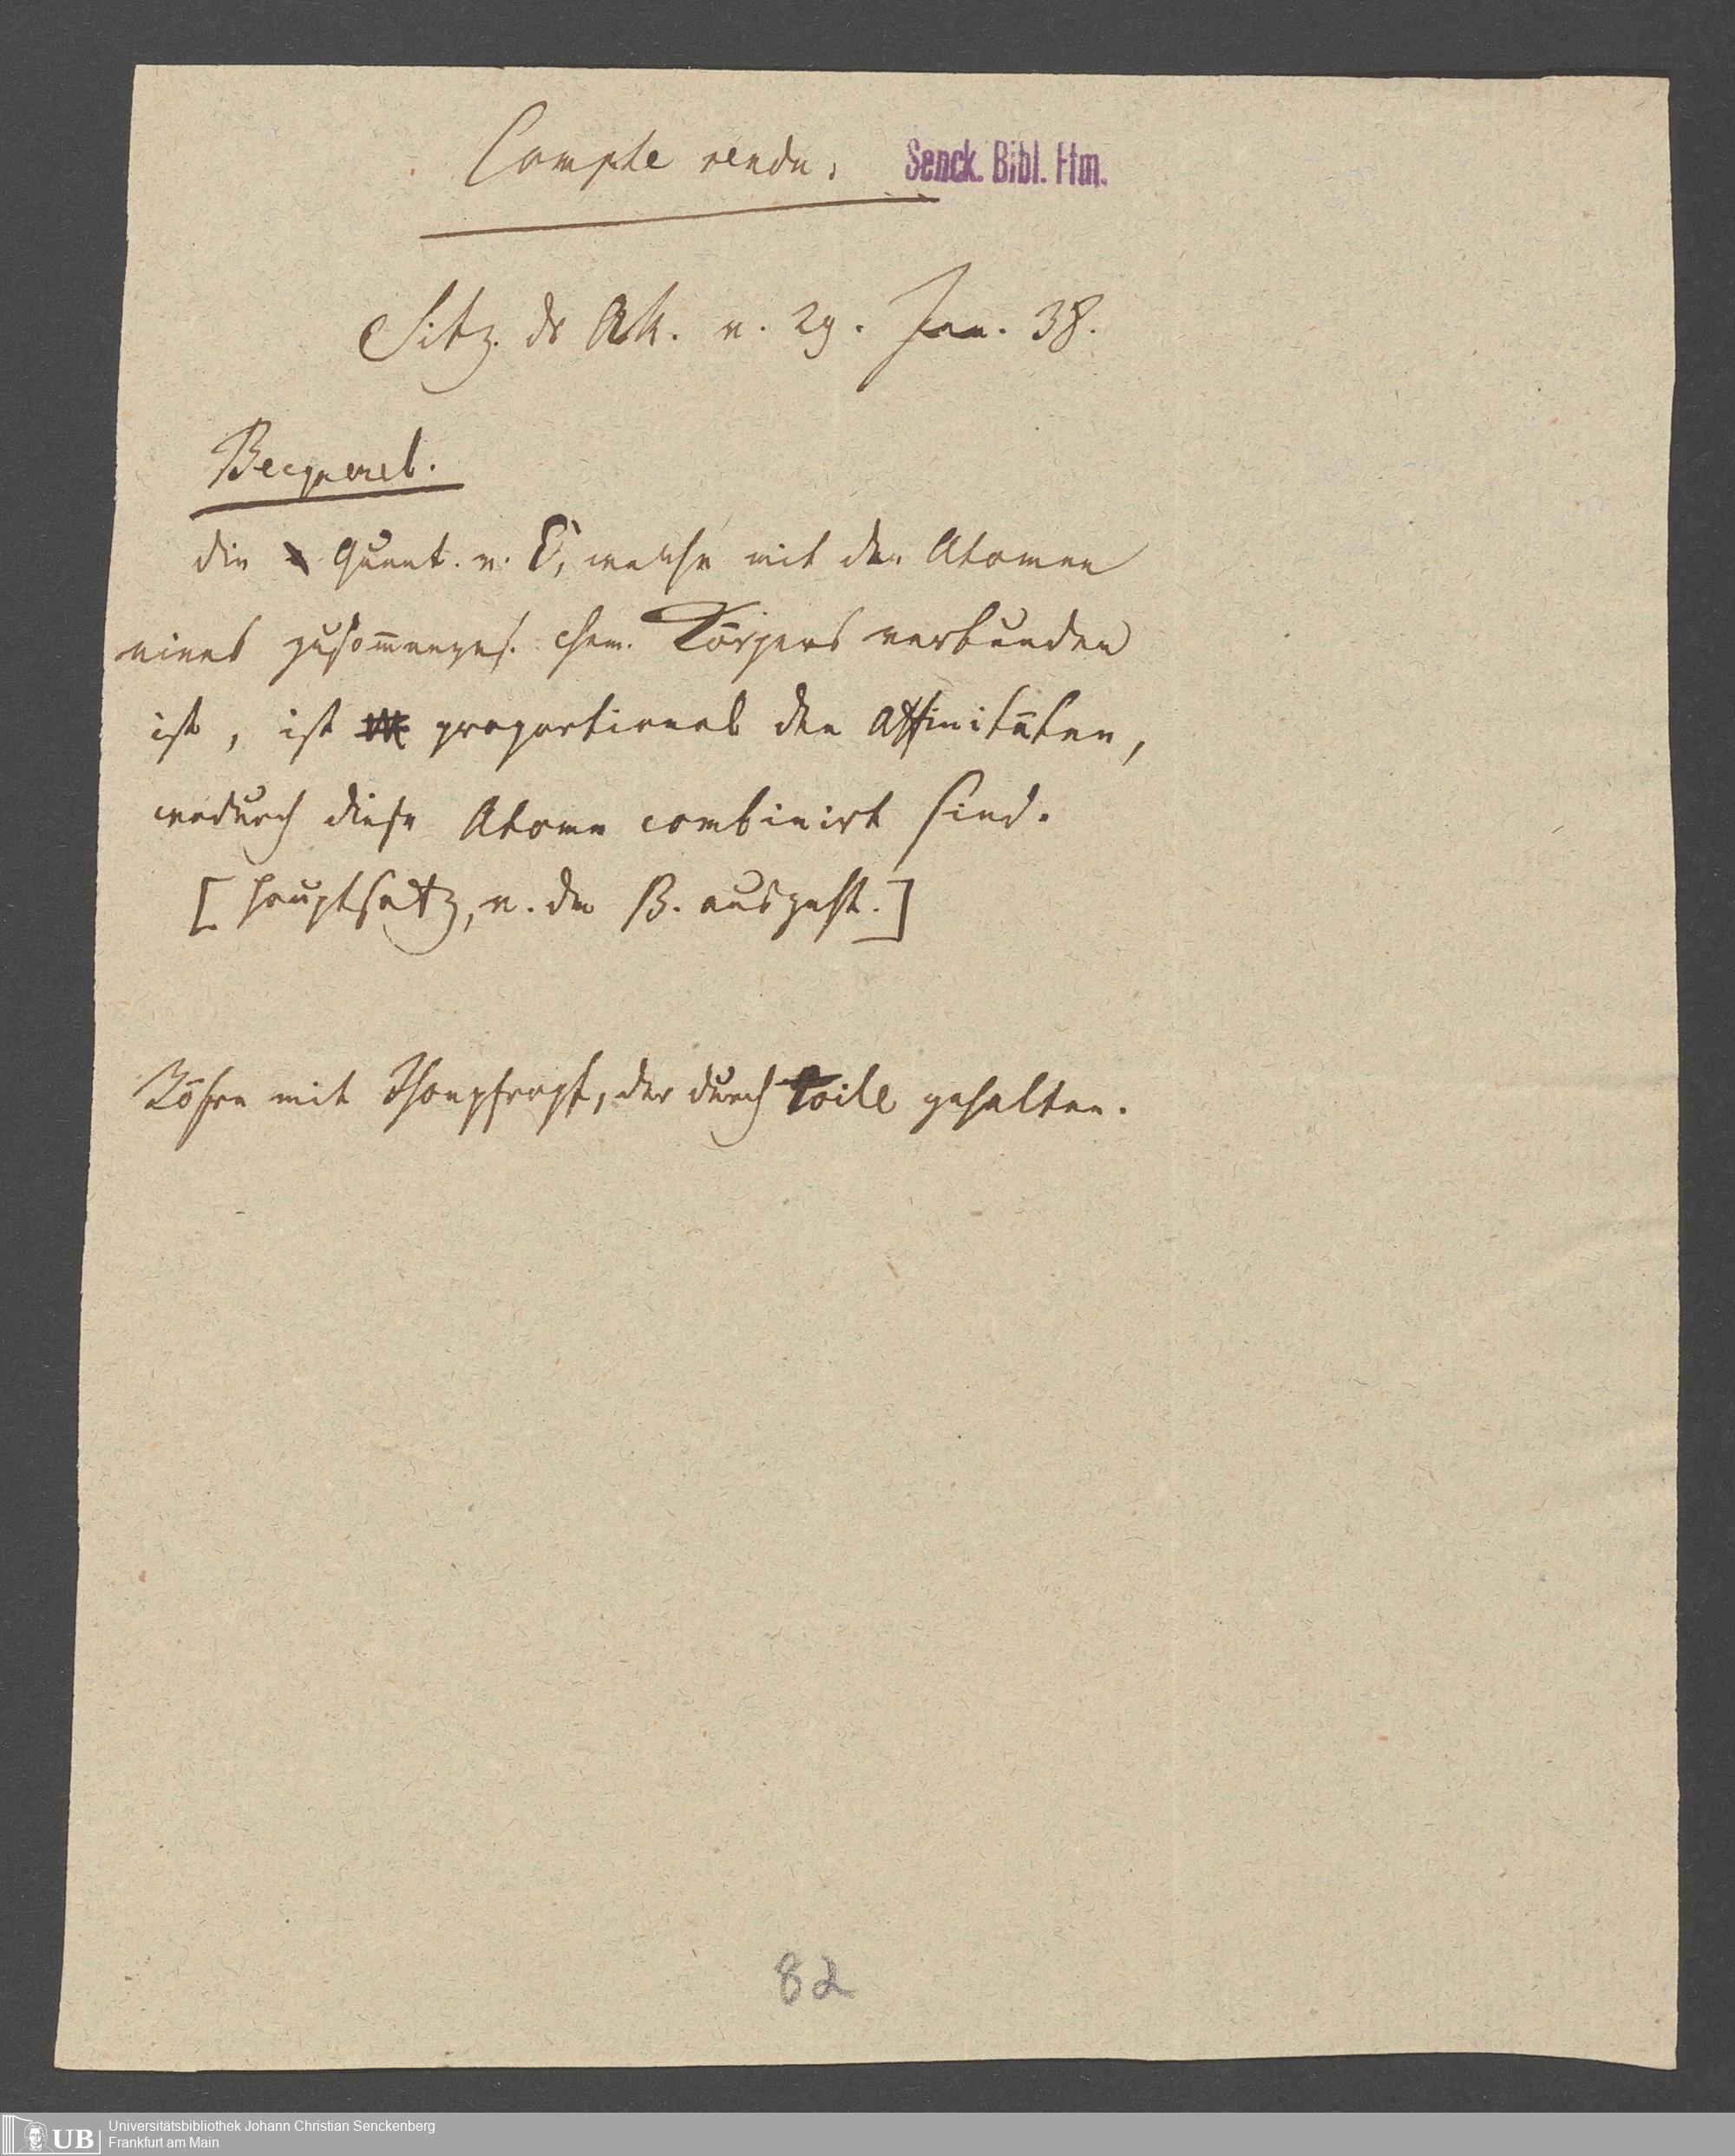 Compte rendu. Senck. Bibl. Ffm.
Sitz. dr Ak. v. 29. Jan. 38.
Becquerel.
die Quant. v. E, welche mit den Atomen
eines zusam̅enges. chem. Körpers verbunden
ist, ist proportional den Affinitäten,
wodurch diese Atome combinirt sind.
[Hauptsatz, v. dem B. ausgeht.]
Röhre mit Thonpfropf, der durch toile gehalten.
82
UB Universitätsbibliothek Johann Christian Senckenberg
Frankfurt am Main